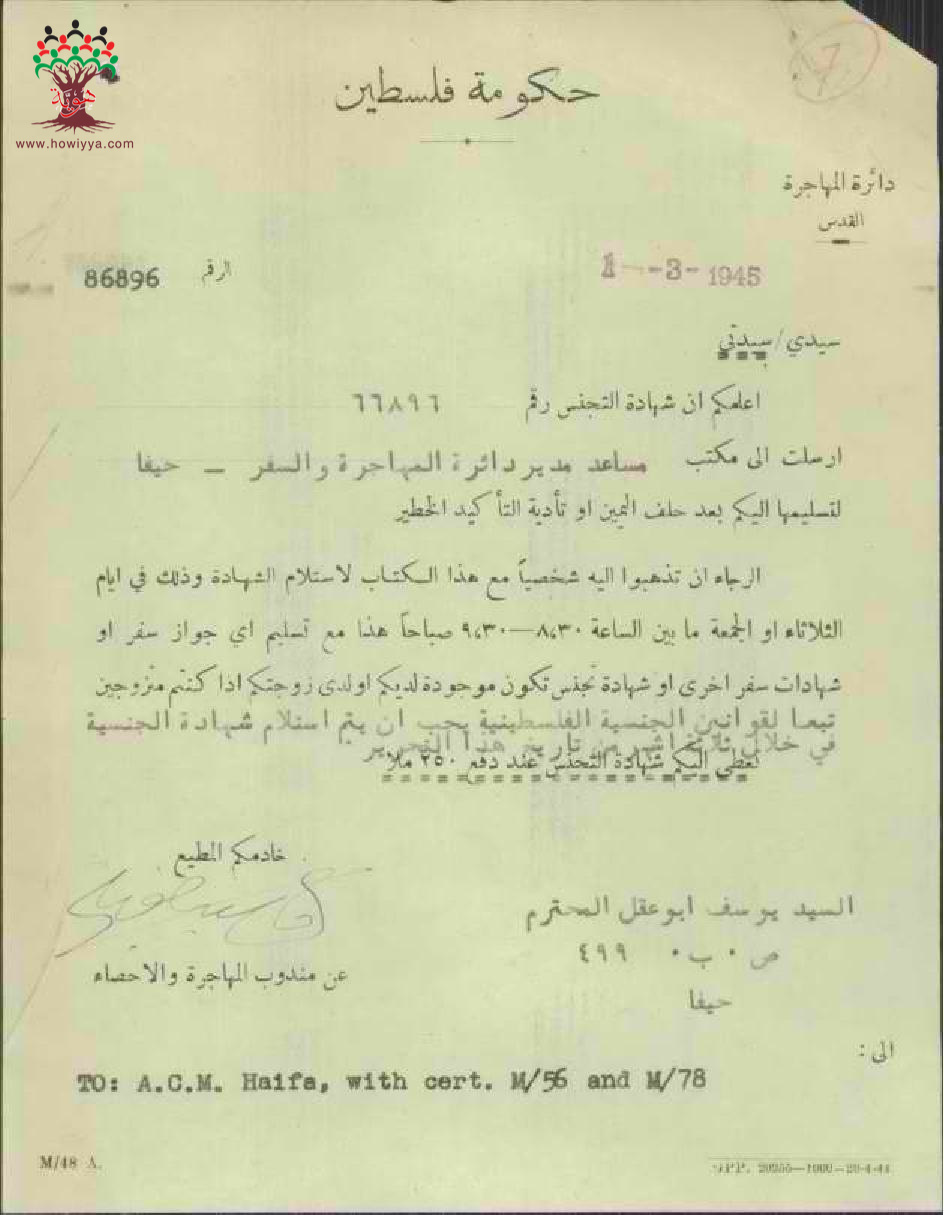 هوية
www.howiyya.com
7
حكومة فلسطين
دائرة المهاجرة
القدس
الرقم 86896
1-3-1945
سيدي/سيدتي
اعلمكم ان شهادة التجنس رقم ٦٦٨٩٦
ارسلت الى مكتب مساعد مدير دائرة المهاجرة والسفر — حيفا
لتسليمها اليكم بعد حلف اليمين او تأدية التأكيد الخطير
الرجاء ان تذهبوا اليه شخصياً مع هذا الكتاب لاستلام الشهادة وذلك في ايام
الثلاثاء او الجمعة ما بين الساعة ٨،٣٠—٩،٣٠ صباحاً هذا مع تسليم اي جواز سفر او
شهادات سفر اخرى او شهادة تجنس تكون موجودة لديكم او لدى زوجتكم اذا كنتم متزوجين
تبعا لقوانين الجنسية الفلسطينية يجب ان يتم استلام شهادة الجنسية
في خلال ثلاثة اشهر من تاريخ هذا التحرير
تعطى اليكم شهادة التجنس عند دفع ٢٥٠ ملاً
خادمكم المطيع
عن مندوب المهاجرة والاحصاء
السيد يوسف ابو عقل المحترم
ص ٠ ب ٠ ٤٩٩
حيفا
الى :
TO: A.C.M. Haifa, with cert. M/56 and M/78
M/48 A.
GPP. 20255—1000—20-4-44